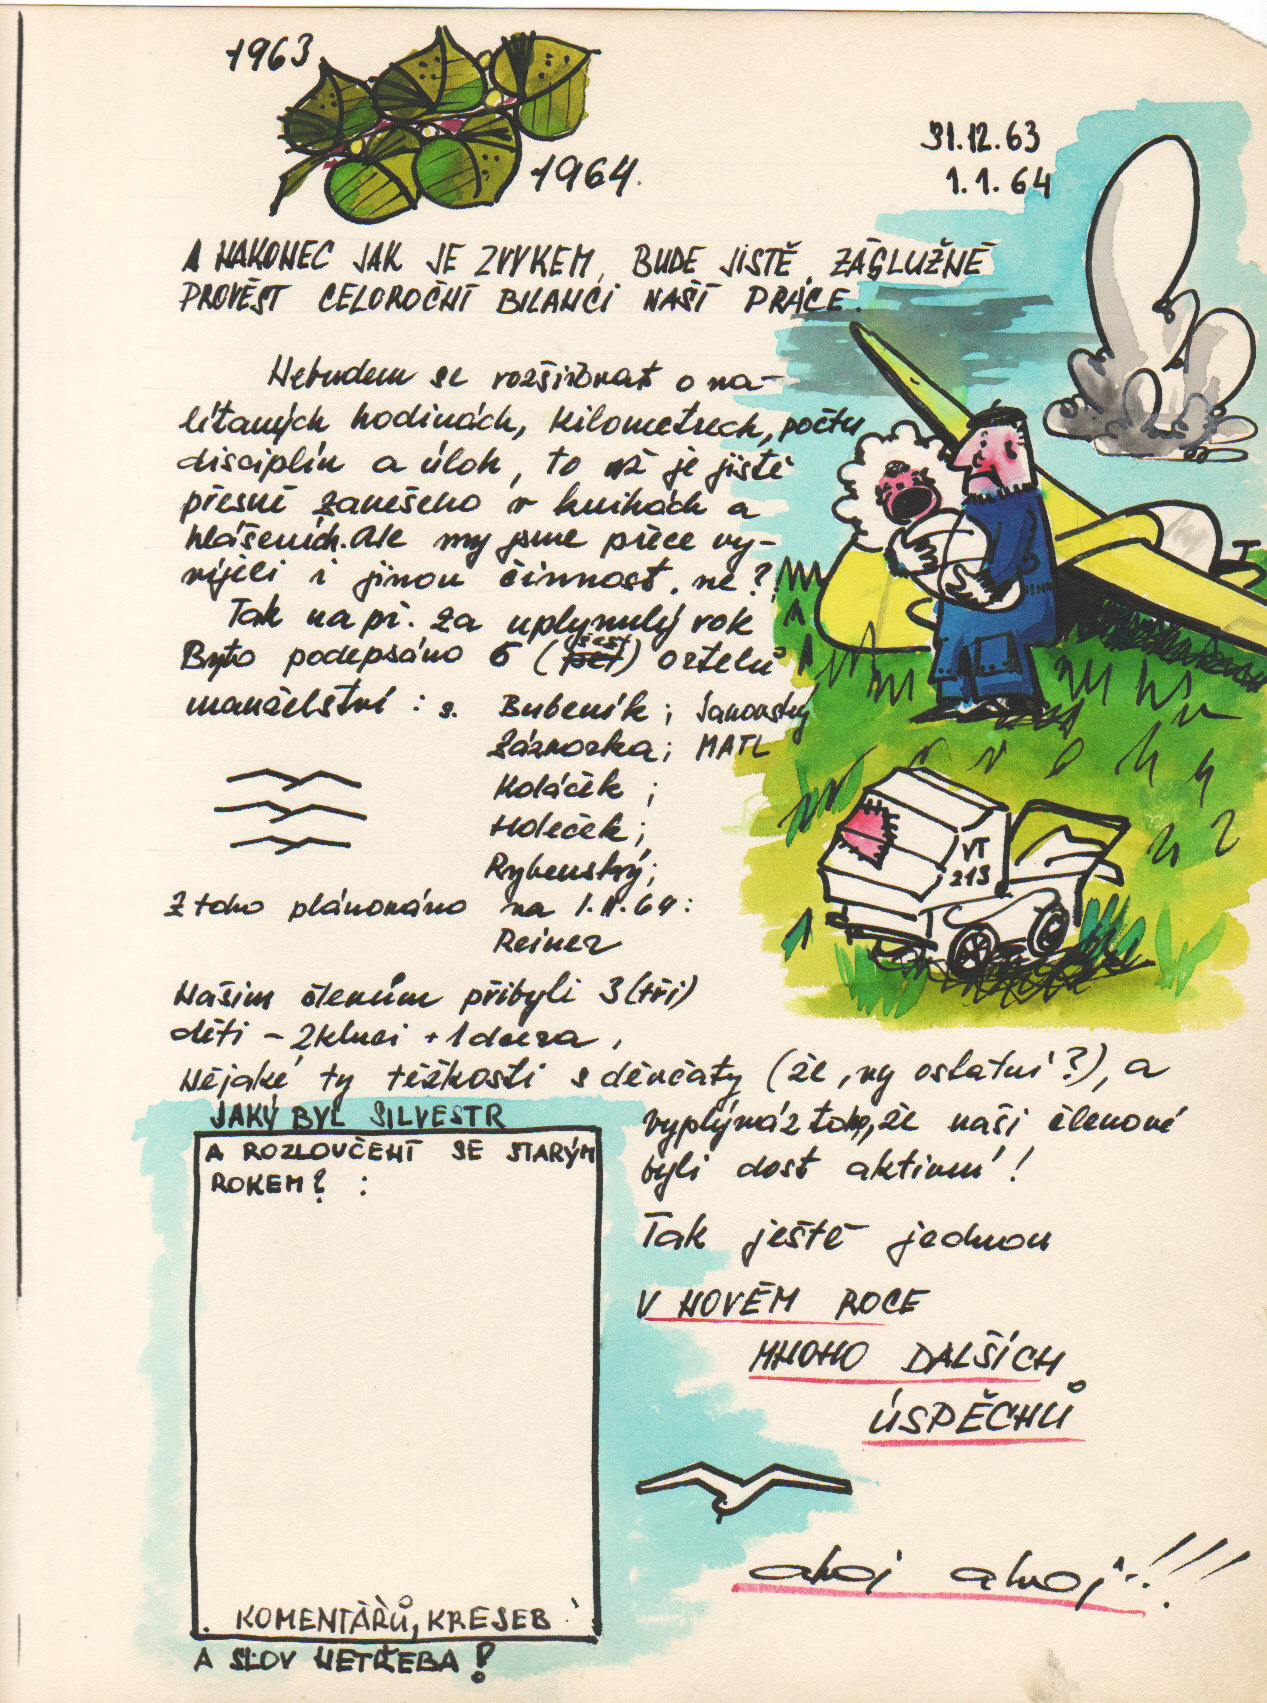 1963
1964.
31.12.63
1.1.64
A NAKONEC JAK JE ZVYKEM, BUDE JISTĚ, ZÁSLUŽNÉ
PROVÉST CELOROČNÍ BILANCI NAŠÍ PRÁCE.
Nebudem se rozšiřovat o na-
lítaných hodinách, kilometrech, počtu
disciplín a úloh, to už je jistě
přesně zanešeno v knihách a
hlášeních. Ale my jsme přece vy-
víjeli i jinou činnost, ne?
Tak na př. za uplynulý rok
Bylo podepsáno 6 (šest) ortelů
manželství: s. Bubeník; Janovský
Sáznovka; MATL
Koláček;
Holeček;
Rybenský;
Z toho plánováno na 1.II.64:
Reiner
Našim členům přibyli 3 (tři)
děti - 2 kluci + 1 dcera,
Nějaké ty těžkosti s děvčaty (že, vy ostatní?), a
vyplývá z toho, že naši členové
byli dost aktivní!
Tak ještě jednou
V NOVÉM ROCE
MNOHO DALŠÍCH
ÚSPĚCHŮ
ahoj ahoj!!!
VT
213
JAKÝ BYL SILVESTR
A ROZLOUČENÍ SE STARÝM
ROKEM? :
. KOMENTÁŘŮ, KRESEB
A SLOV NETŘEBA!